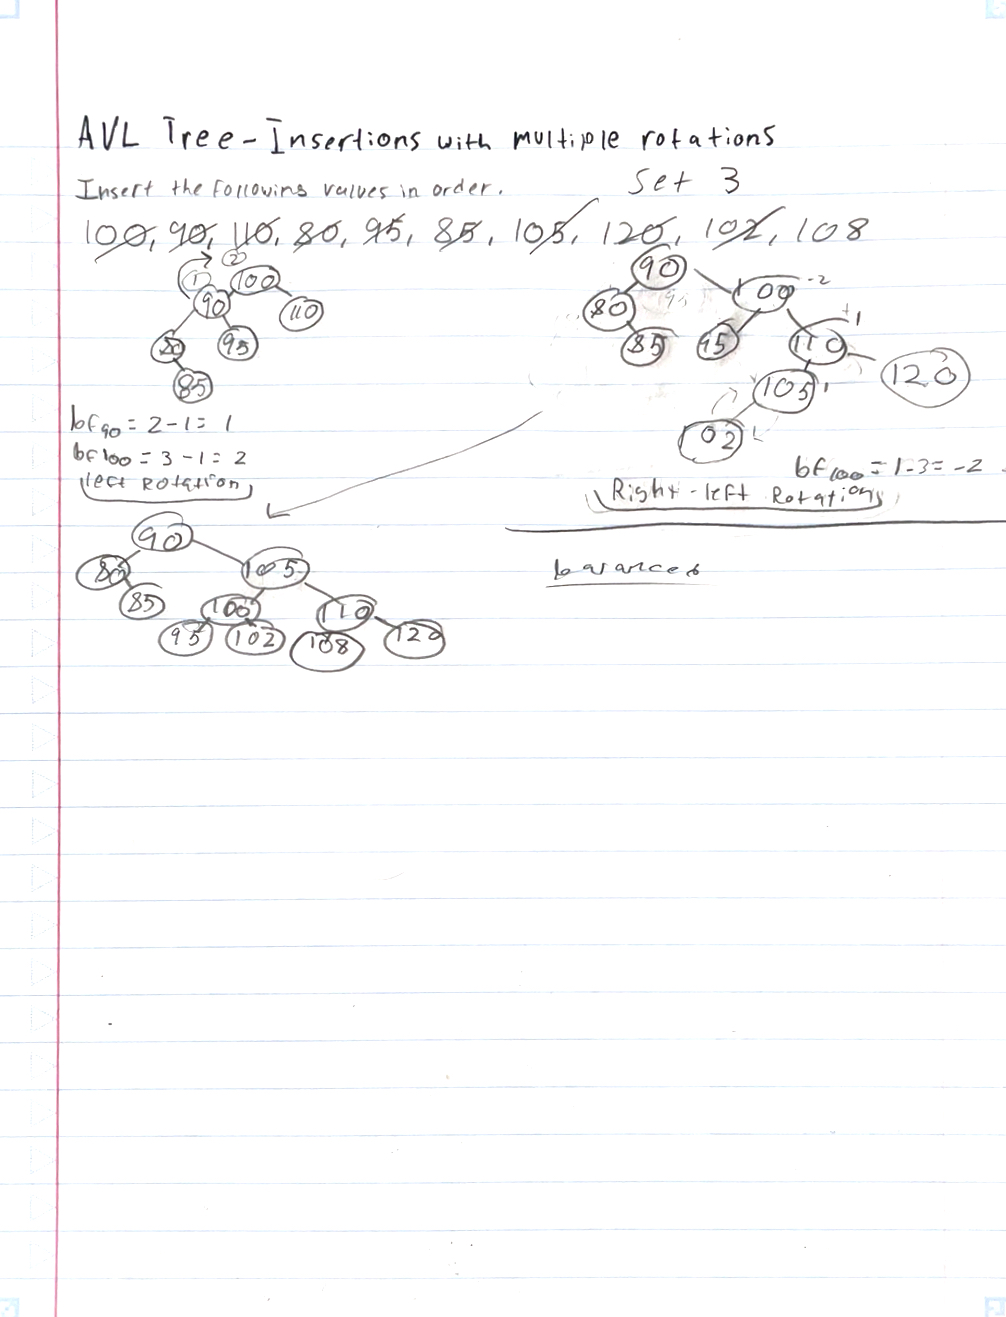 AVL Tree - Insertions with multiple rotations
Insert the following values in order. Set 3
100, 90, 110, 80, 95, 85, 105, 120, 102, 108
1 2
100
90 110
80 95
85
bf90 = 2-1 = 1
bf100 = 3-1 = 2
left Rotation
90
80 100 -2
85 95 110 +1
105 1 120
02
bf100 = 1-3 = -2
Right-left Rotations
90
80 105
85 100 110
95 102 108 120